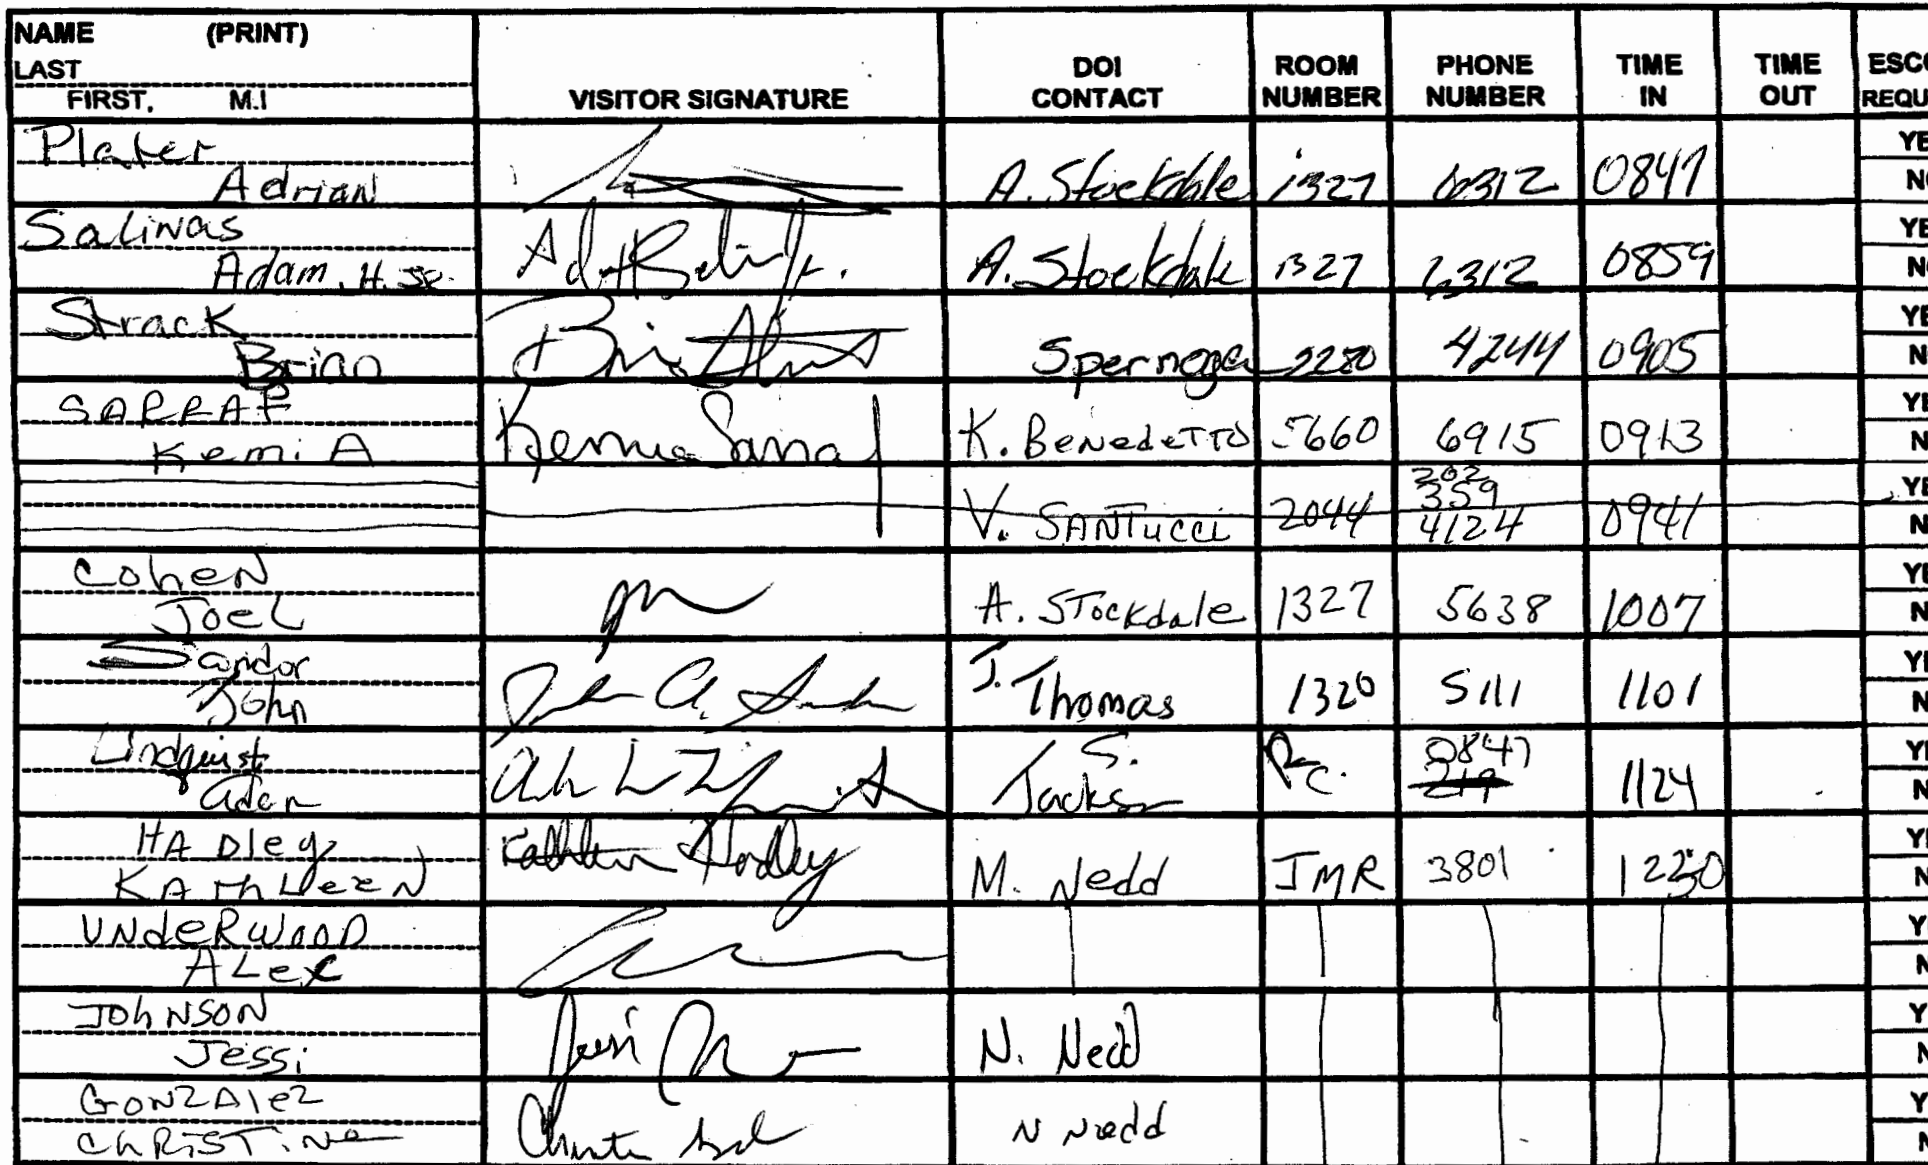 NAME (PRINT)
LAST
FIRST, M.I
VISITOR SIGNATURE
DOI CONTACT
ROOM NUMBER
PHONE NUMBER
TIME IN
TIME OUT
ESCO
REQU
Plater
Adrian A. Stockdale 1327 6312 0847
YE
NO
Salinas
Adam. H. Jr. A. Stockdale 1327 6312 0859
YE
NO
Strack
Brian 4244 0905
YE
N
SARRAF
Kemi A K. BENEDETTO 5660 6915 0913
YE
N
202
359
V. SANTUCCI 2044 4124 0941
YE
N
Cohen
Joel A. STockdale 1327 5638 1007
YE
N
Sandor
John J. Thomas 1320 5111 1101
YE
N
Lindquist S. 0847
Jackson 1124
YE
N
HADley Kathleen Hadley
KAthLeeN M. Nedd JMR 3801
YE
N
UNdeRWOOD
ALex
Y
N
JOhNSON
Jessi N. Nedd
Y
N
GONZAlez
ChRiSTiNe N Nedd
Y
N